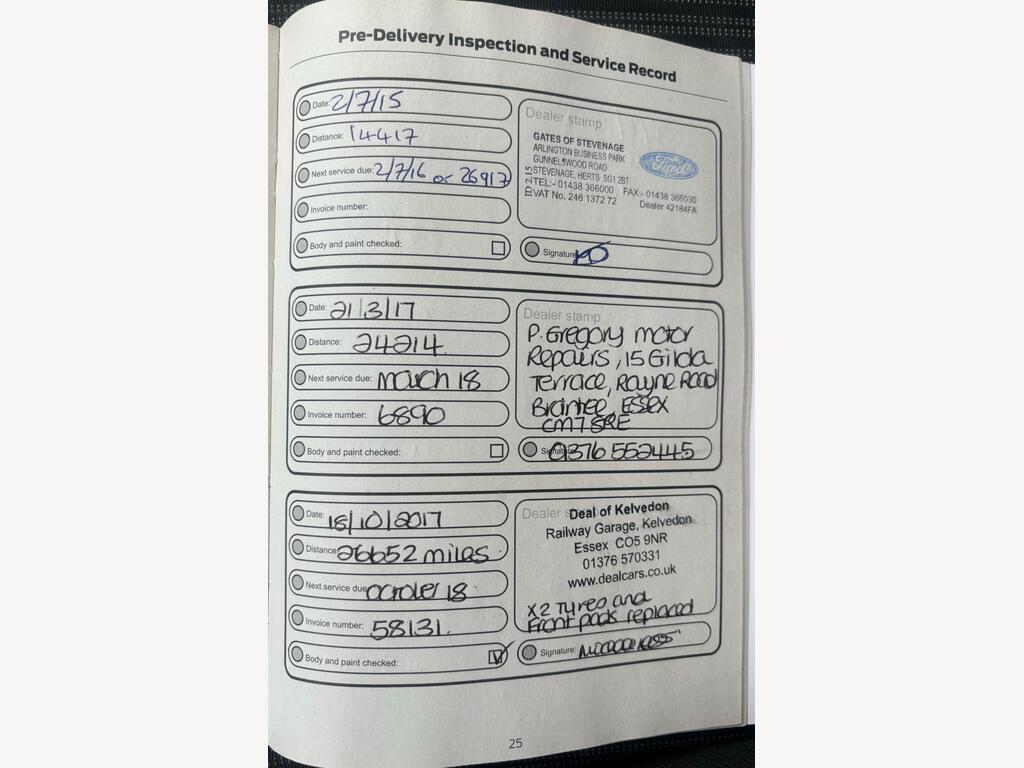 Pre-Delivery Inspection and Service Record
Date: 2/7/15
Distance: 14417
Next service due: 2/7/16 or 26917
Invoice number:
Body and paint checked:
Dealer stamp
GATES OF STEVENAGE
ARLINGTON BUSINESS PARK
GUNNELSWOOD ROAD
STEVENAGE, HERTS SG1 2BT
TEL:- 01438 366000 FAX:- 01438 366030
VAT No. 246 1372 72 Dealer 42184FA
Ford
Signature
Date: 21/3/17
Distance: 24214
Next service due: March 18
Invoice number: 6890
Body and paint checked:
Dealer stamp
P. Gregory motor
Repairs, 15 Gilda
Terrace, Rayne Road
Braintee, ESSEX
CM7 5RE
Signature 01376 552445
Date: 18/10/2017
Distance 26652 miles
Next service due 18
Invoice number: 58131.
Body and paint checked:
Dealer
Deal of Kelvedon
Railway Garage, Kelvedon
Essex CO5 9NR
01376 570331
www.dealcars.co.uk
x2 Tyres and
Front pads replaced
Signature:
25